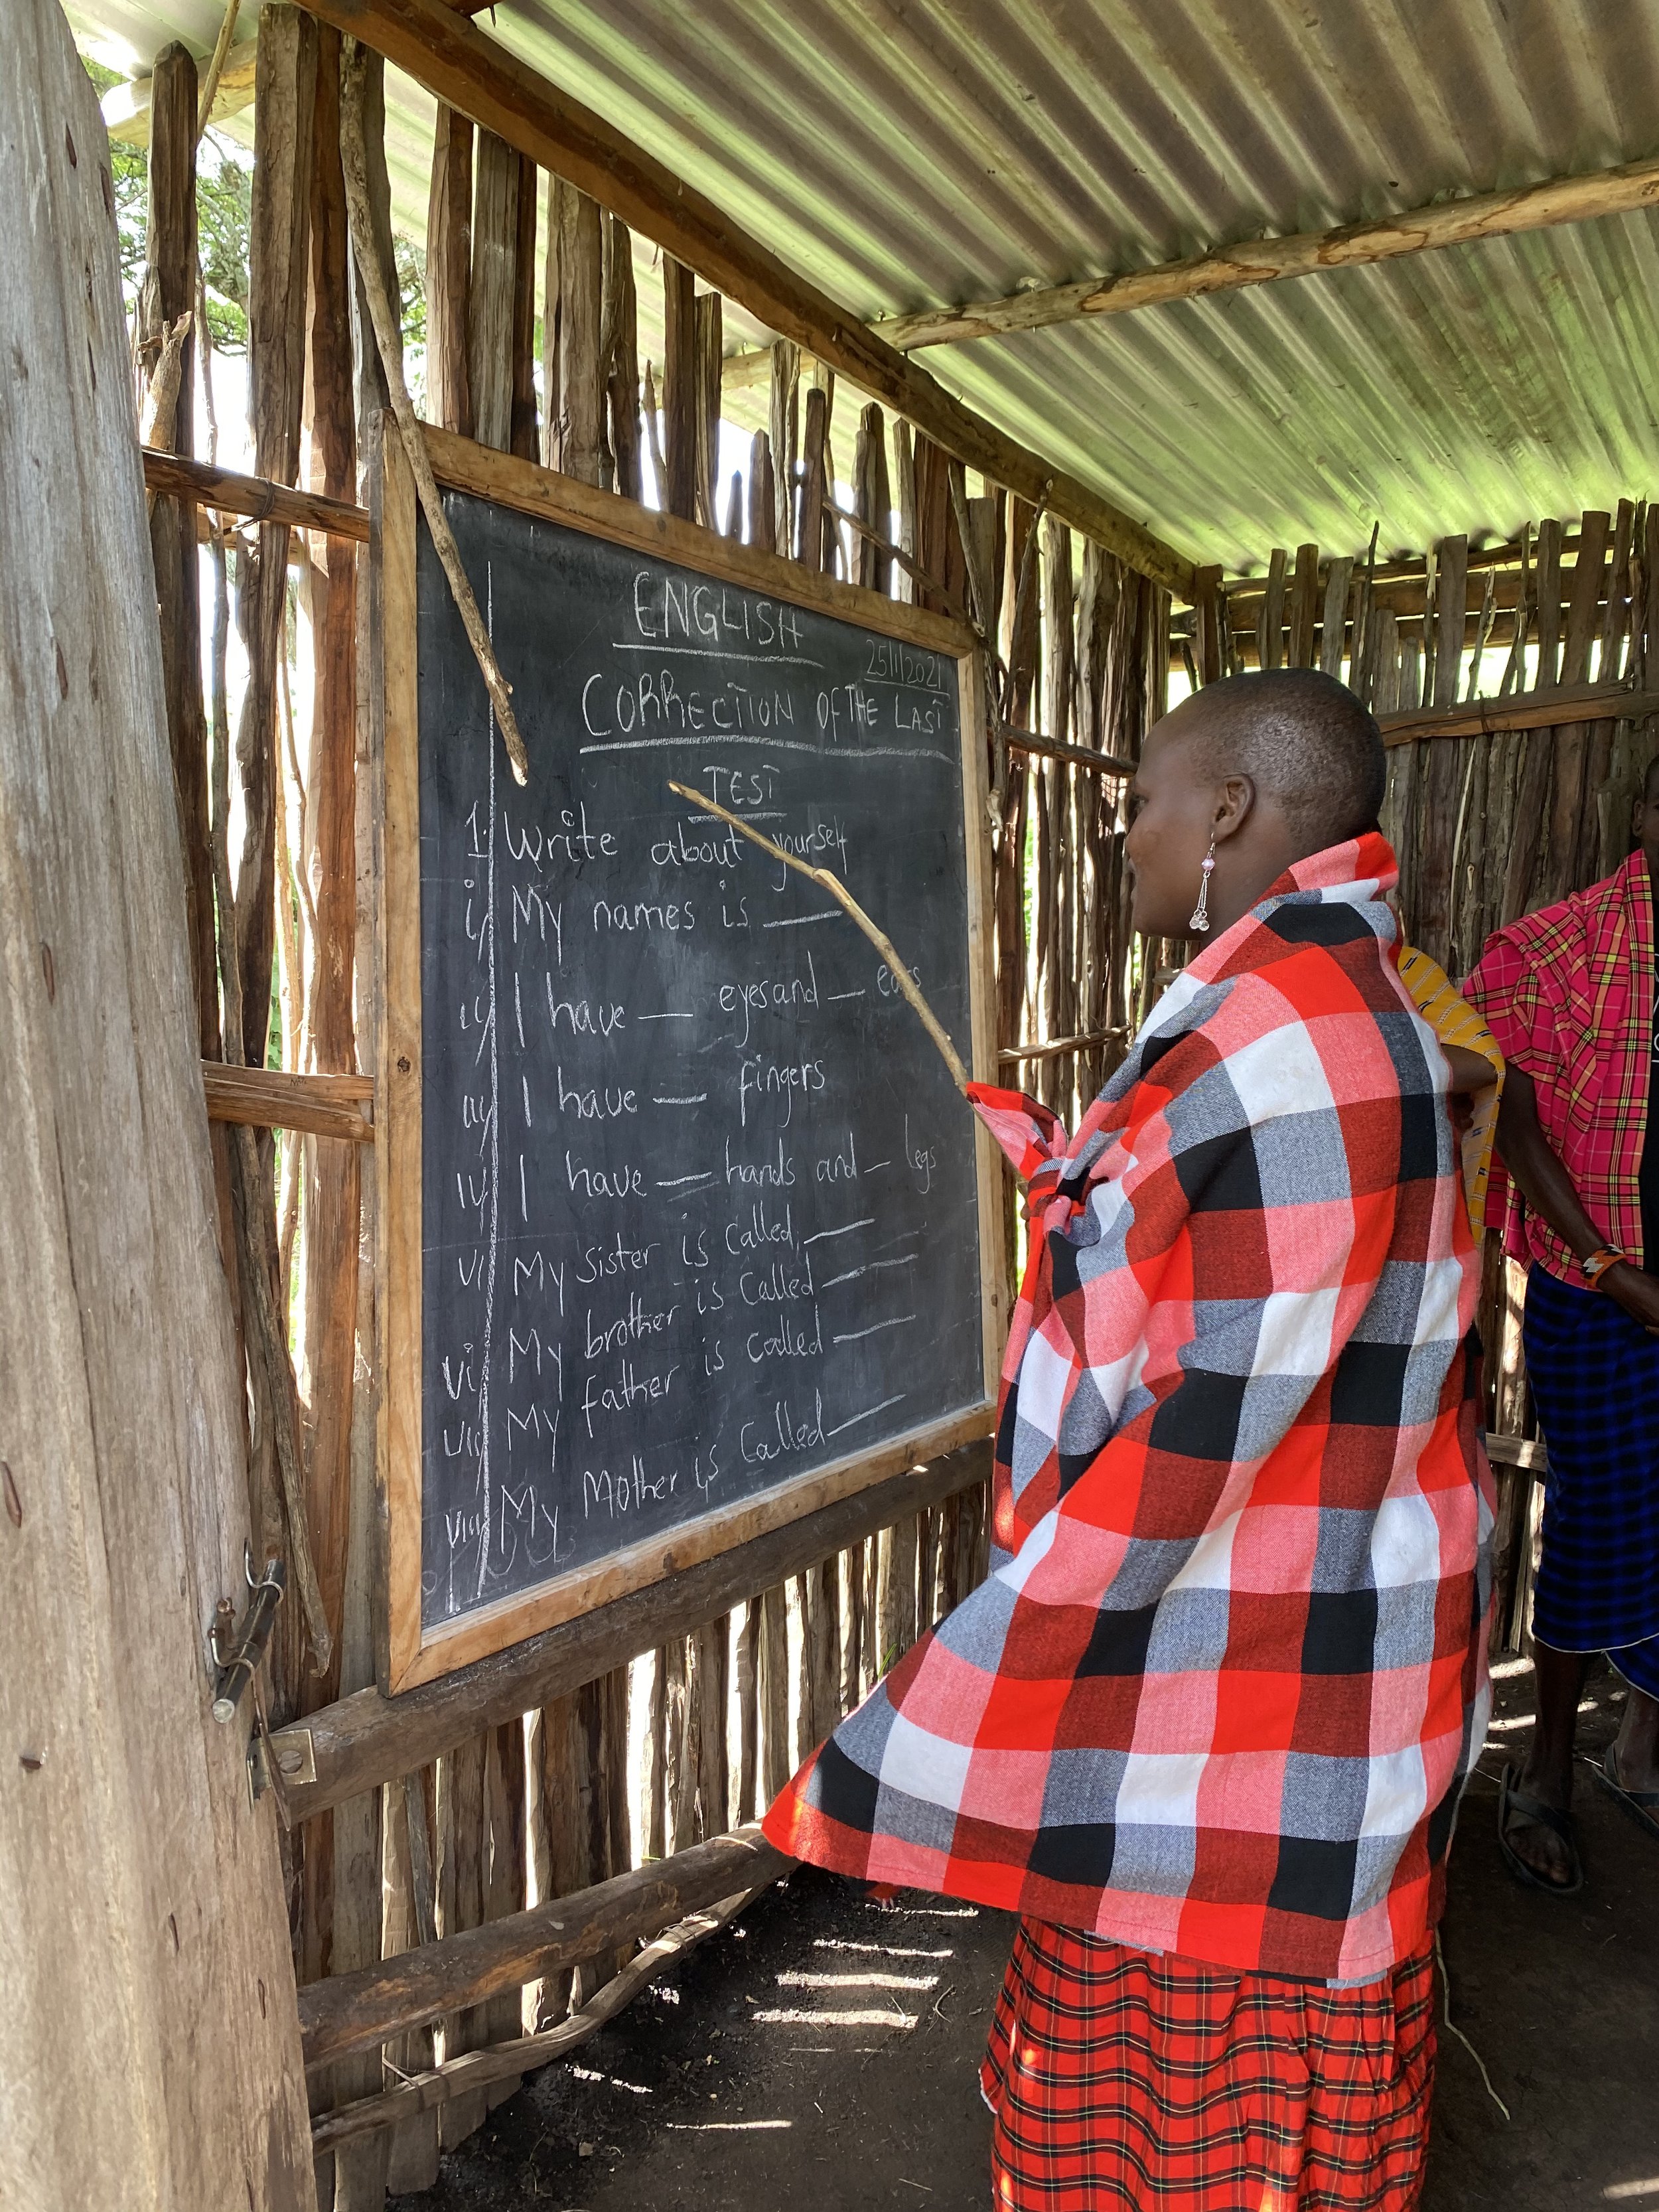 ENGLISH
25/11/2021
CORRECTION OF THE LAST
TEST
1. Write about yourself
i) My names is ___
ii) I have ___ eyes and ___ ears
iii) I have ___ fingers
iv) I have ___ hands and ___ legs
vi) My sister is called, ___
vi My brother is Called ___
vii) My father is called ___
viii) My Mother is Called ___